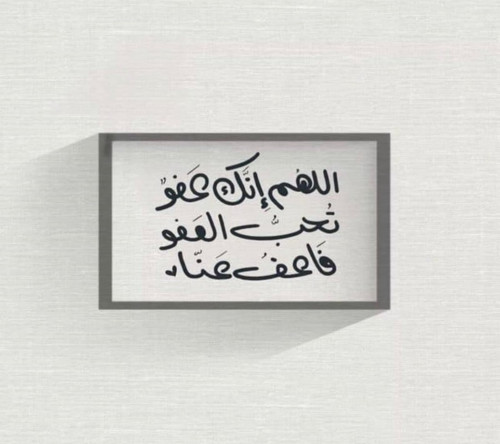 اللهم إنَّك عَفوٌ
تُحبُّ العَفو
فَاعفُ عَنّا